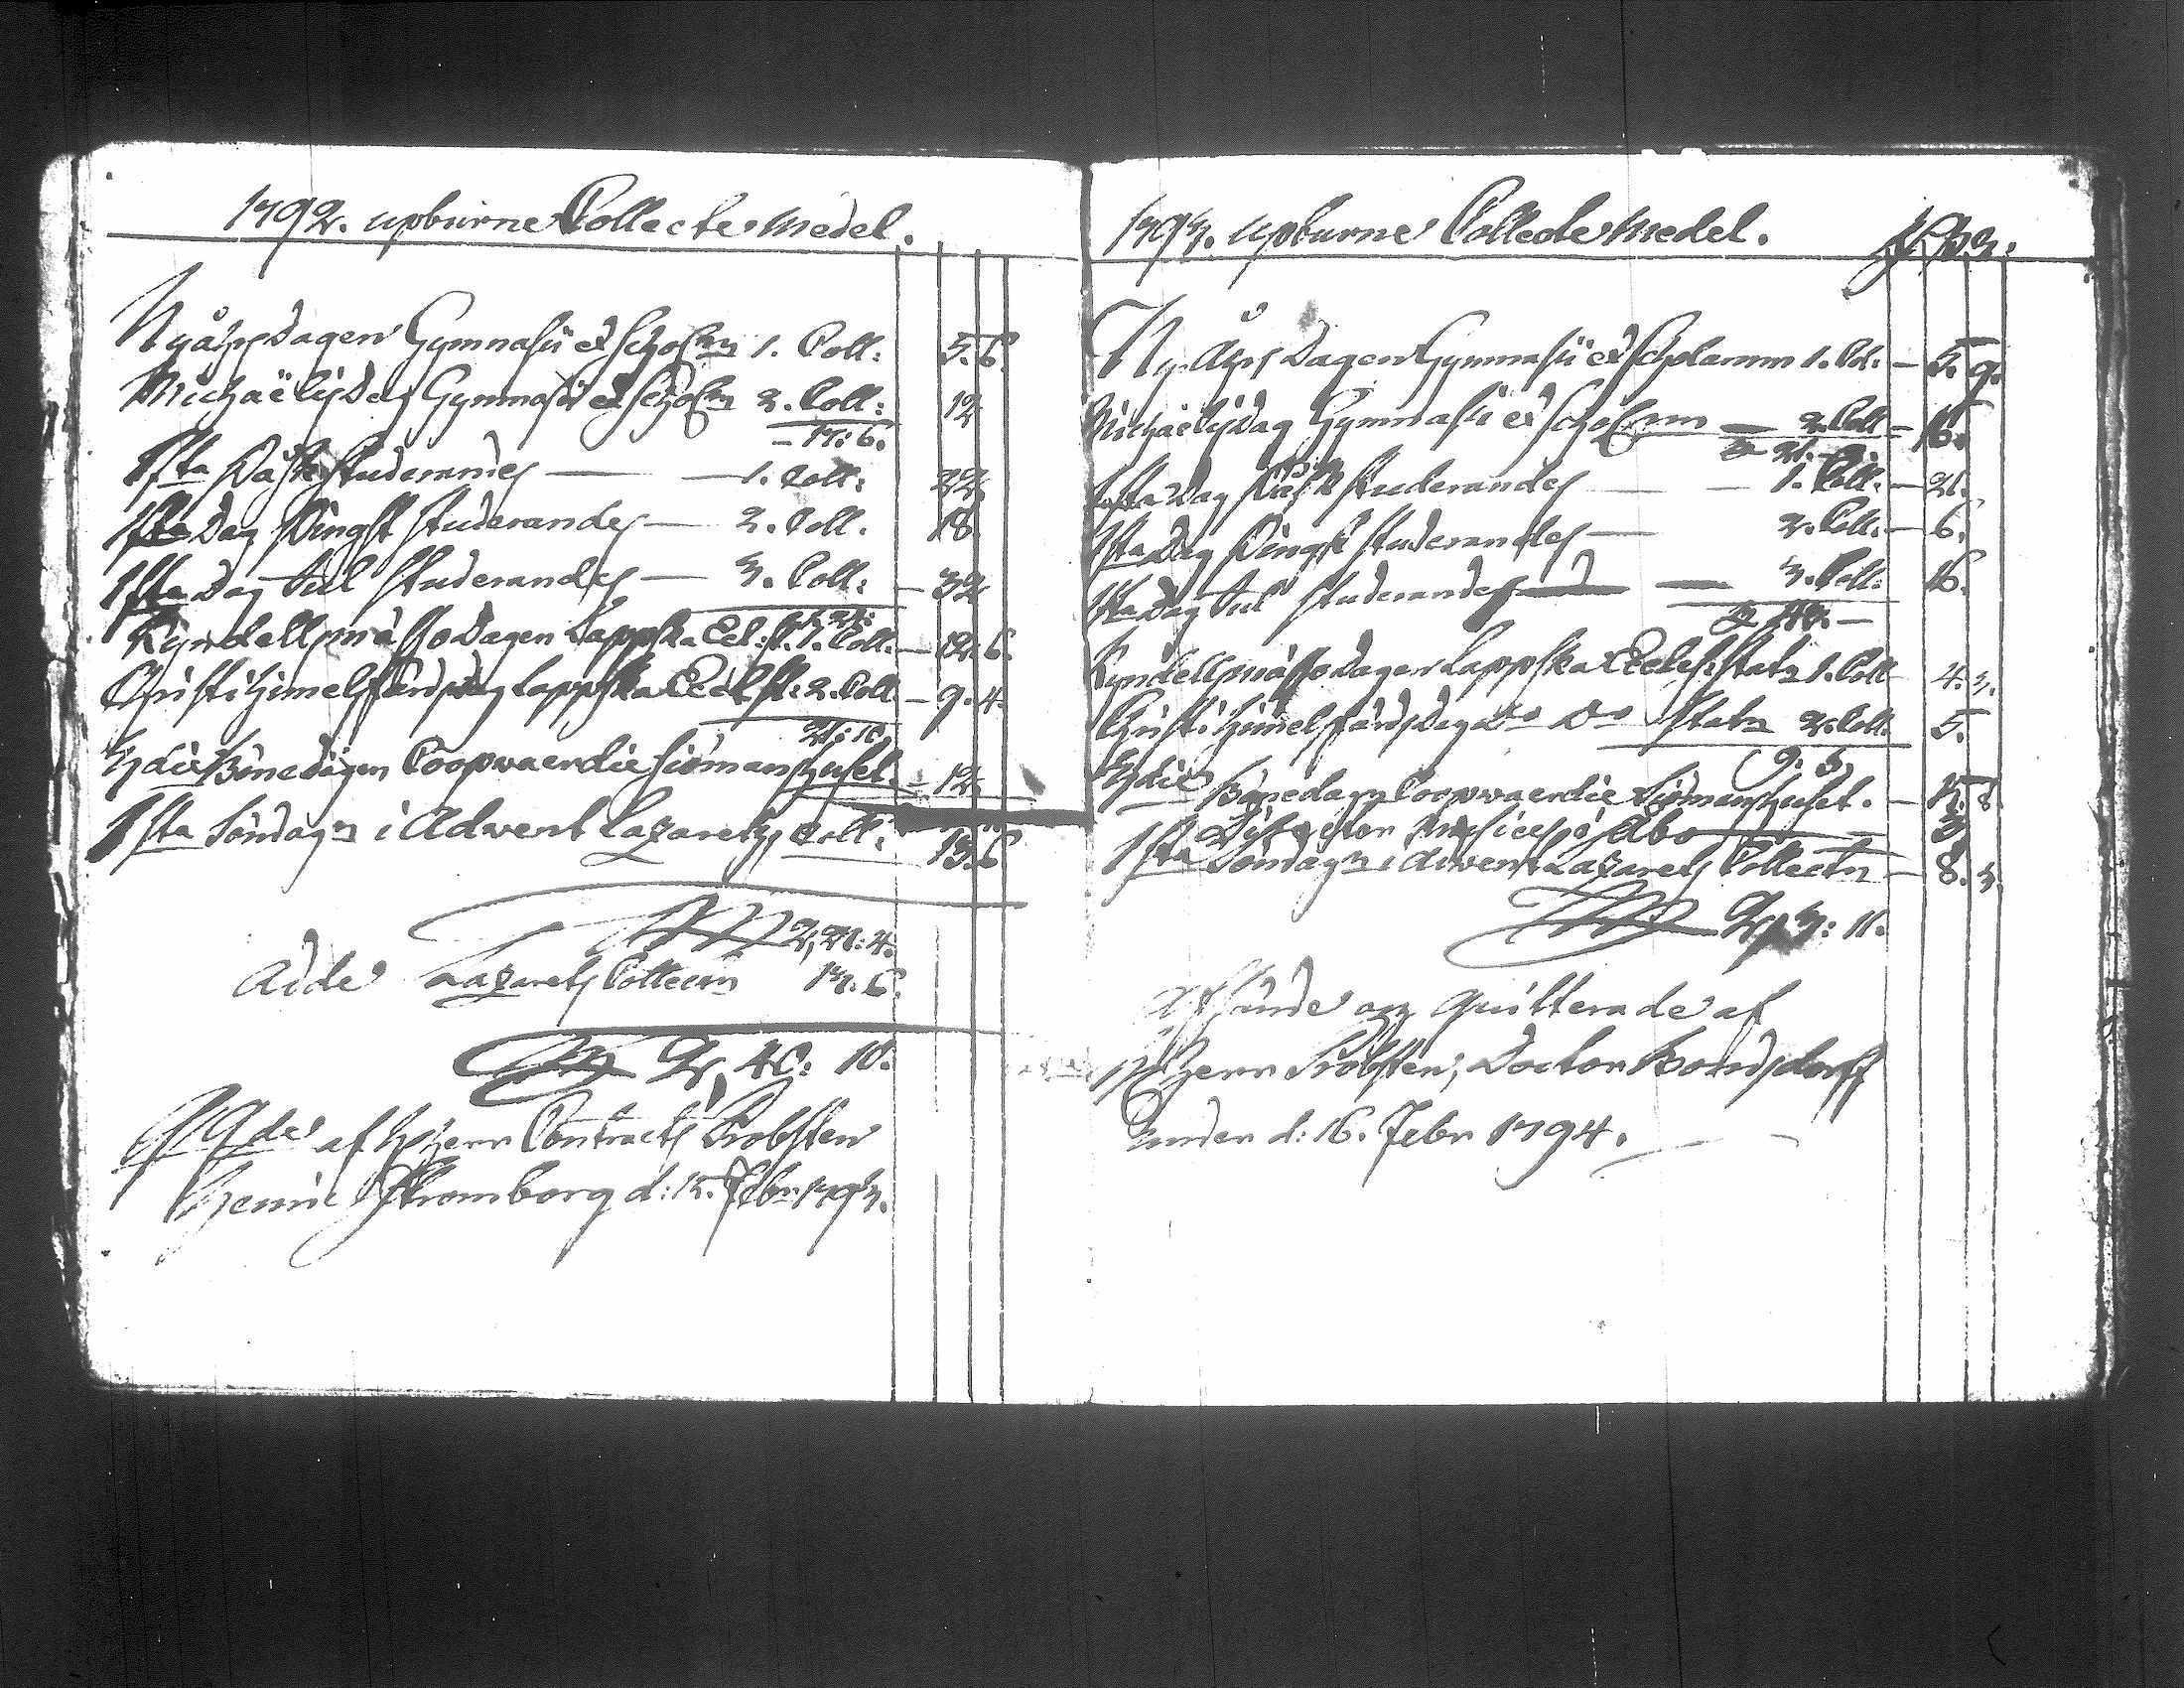 1792. upburne Collecte Medel.
Nyårs dagen Gymnasii et Schol:m 1. Coll: 5. 6.
Michaëlis Dag Gymnasii et Schol:m 2. Coll: 12
17: 6.
1sta Påsk Studerandes — — 1. Coll: 22
1sta Dag Pingst Studerandes — 2. Coll. 18
1sta Dag Jul Studerandes — 3. Coll: — 32
1. 24:
Kyndelsmässo Dagen Lappska Ecl: st. 1. Coll. — 12. 6.
Christi Himelsfärds dag Lappska Eccl. St: 2. Coll — 9. 4.
21: 10.
3die Bönedagen Coopvaerdie Siömanshuset. — 12
1sta Söndagen i Advent Lazaretz Coll: 13. 6
2, 27: 4.
Adde Lazarets Collecten 13. 6.
2, 40: 10.
af H Herr Contracts Probsten
Henric Stromborg d: 15. Febr: 1793.
1793. upburne Collecte Medel.
Ny Års Dagen Gymnasii et Scholarum 1. Col: — 5. 9.
Michaëlis Dag Gymnasii et Schol:rum — 2. Coll — 16.
21.
1sta Dag Påsk Studerandes — — 1. Coll. — 21.
1sta Dag Pingst Studerandes — 2. Coll. — 6.
1sta Dag Jul Studerandes — 3. Coll: 16.
Kyndelsmässo Dagen Lappska Eccles: Staten 1. Coll 4. 3.
Christi Himelsfärds Dag Do Do Staten 2. Coll. 5.
9. 3.
3die Bönedagen Coopvaerdie Siömanshuset. —
Åbo
1sta Söndagen i Advent Lazarets Collecten — 8. 3.
2, 3: 11.
Afsände och quitterade af
H Herr Probsten, Doctor Bonsdorff
under d: 16. Febr 1794.